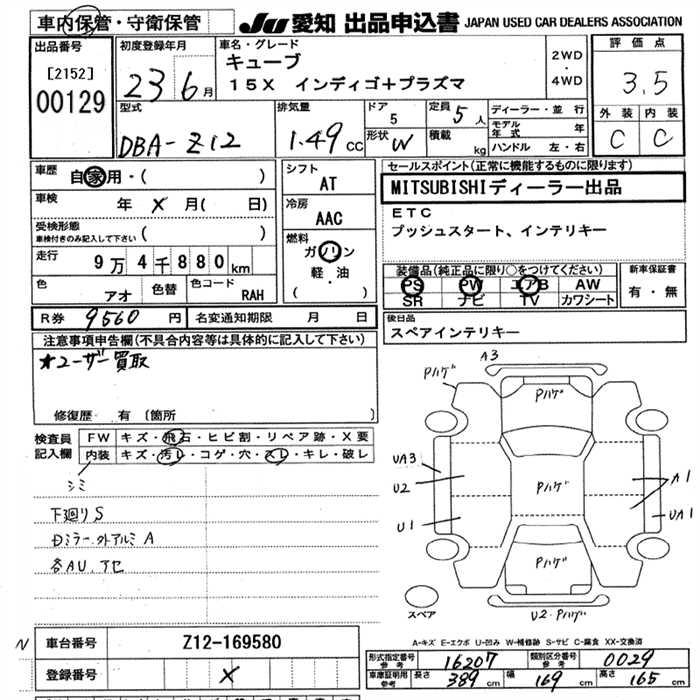 車内保管・守衛保管
JU 愛知 出品申込書 JAPAN USED CAR DEALERS ASSOCIATION
出品番号
[2152]
00129
初度登録年月
23 6月
車名・グレード
キューブ
15X インディゴ+プラズマ
2WD
・
4WD
評価点
3.5
外装 内装
C C
型式
DBA-Z12
排気量
1.49 CC
ドア
5
定員
5人
形状
W
積載
kg
ディーラー・並行
モデル年式 年
ハンドル 左・右
車歴
自家用・( )
車検
年 X 月( 日)
受検形態
車検付きのみ記入して下さい ( )
走行
9万4千880km
色
アオ
色替
色コード
RAH
シフト
AT
冷房
AAC
燃料
ガソリン
軽・油
( )
セールスポイント(正常に機能するものに限ります)
MITSUBISHIディーラー出品
ETC
プッシュスタート、インテリキー
装備品(純正品に限り○をつけてください)
PS PW エアB AW
SR ナビ TV カワシート
新車保証書
有・無
後日品
スペアインテリキー
R券 9560 円
名変通知期限 月 日
注意事項申告欄(不具合内容等は具体的に記入して下さい)
★ユーザー買取
修復歴 有 (箇所 )
検査員記入欄
FW キズ・飛石・ヒビ割・リペア跡・X要
内装 キズ・汚レ・コゲ・穴・スレ・キレ・破レ
シミ
下廻りS
Dミラー.外アルミA
各AU.アセ
A3
Pハゲ
Pハゲ
UA3
U2
U1
Pハゲ
A1
UA1
Pハゲ
スペア
U2・Pハゲ
A-キズ E-エクボ U-凹み W-補修跡 S-サビ C-腐食 XX-交換済
N
車台番号 Z12-169580
登録番号 X
形式指定番号 参考 16207
類別区分番号 参考 0029
車庫証明用 参考 長さ 389 cm 幅 169 cm 高さ 165 cm